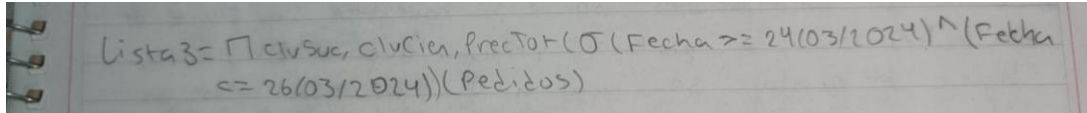 Lista3= Π clvSuc, clvClien, PrecTot (σ (Fecha >= 24(03/2024) ^ (Fecha
<= 26(03/2024))(Pedidos)